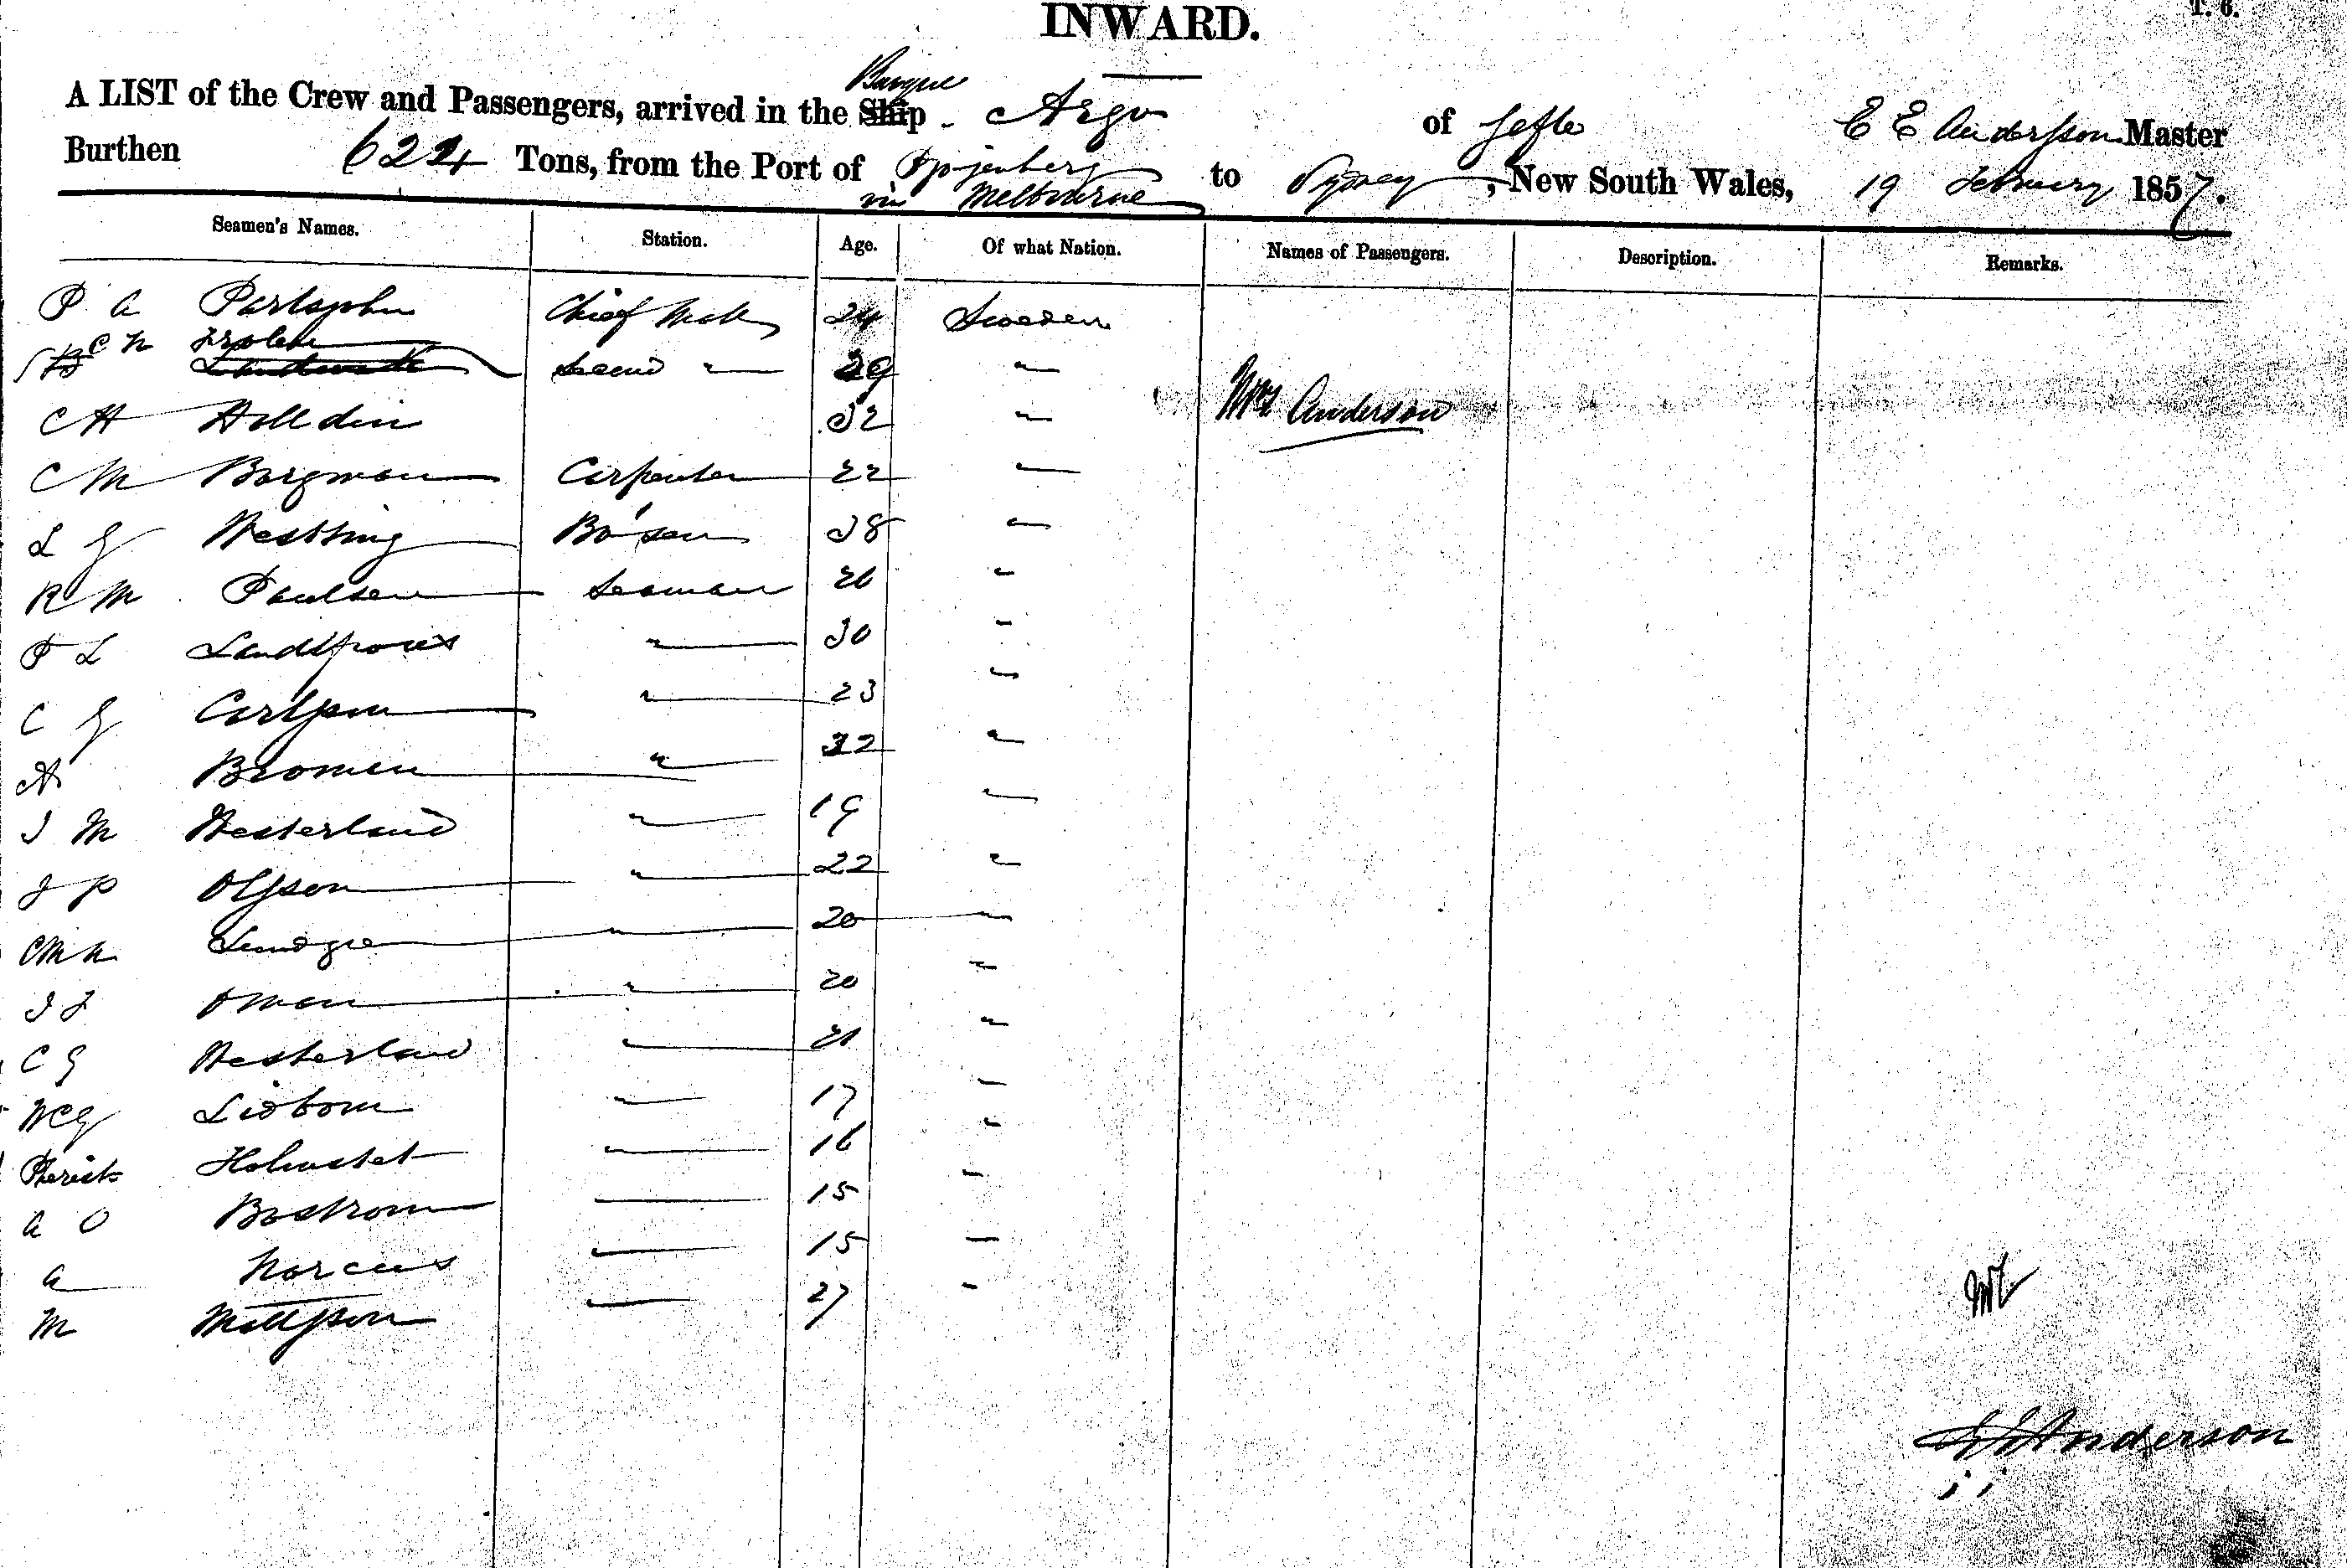 T. 6.
INWARD.
A LIST of the Crew and Passengers, arrived in the Ship Barque Argo of Gefle C E Andersson Master
Burthen 624 Tons, from the Port of via Melbourne to Sydney, New South Wales, 19 February 1857.
Seamen's Names. Station. Age. Of what Nation. Names of Passengers. Description. Remarks.
P A Chief Mate 24 Sweden
C N Second " 29 "
C H Helldin 32 " Mrs Anderson
C M Borgman Carpenter 22 "
L G Westling Bo'sen 38 "
R M Paulsen Seaman 26 "
P L " 30 "
C G Carlsson " 23 "
A Bromen " 32 "
J M Westerlund " 19 "
J P Olsson " 22 "
C M N Lundgren " 20 "
J F Oman " 20 "
C G Westerlund " 21 "
W C G Lidbom " 17 "
Holmstet " 16 "
A O Bostrom " 15 "
A Norcius " 15 "
M Mattsson " 27 "
Anderson